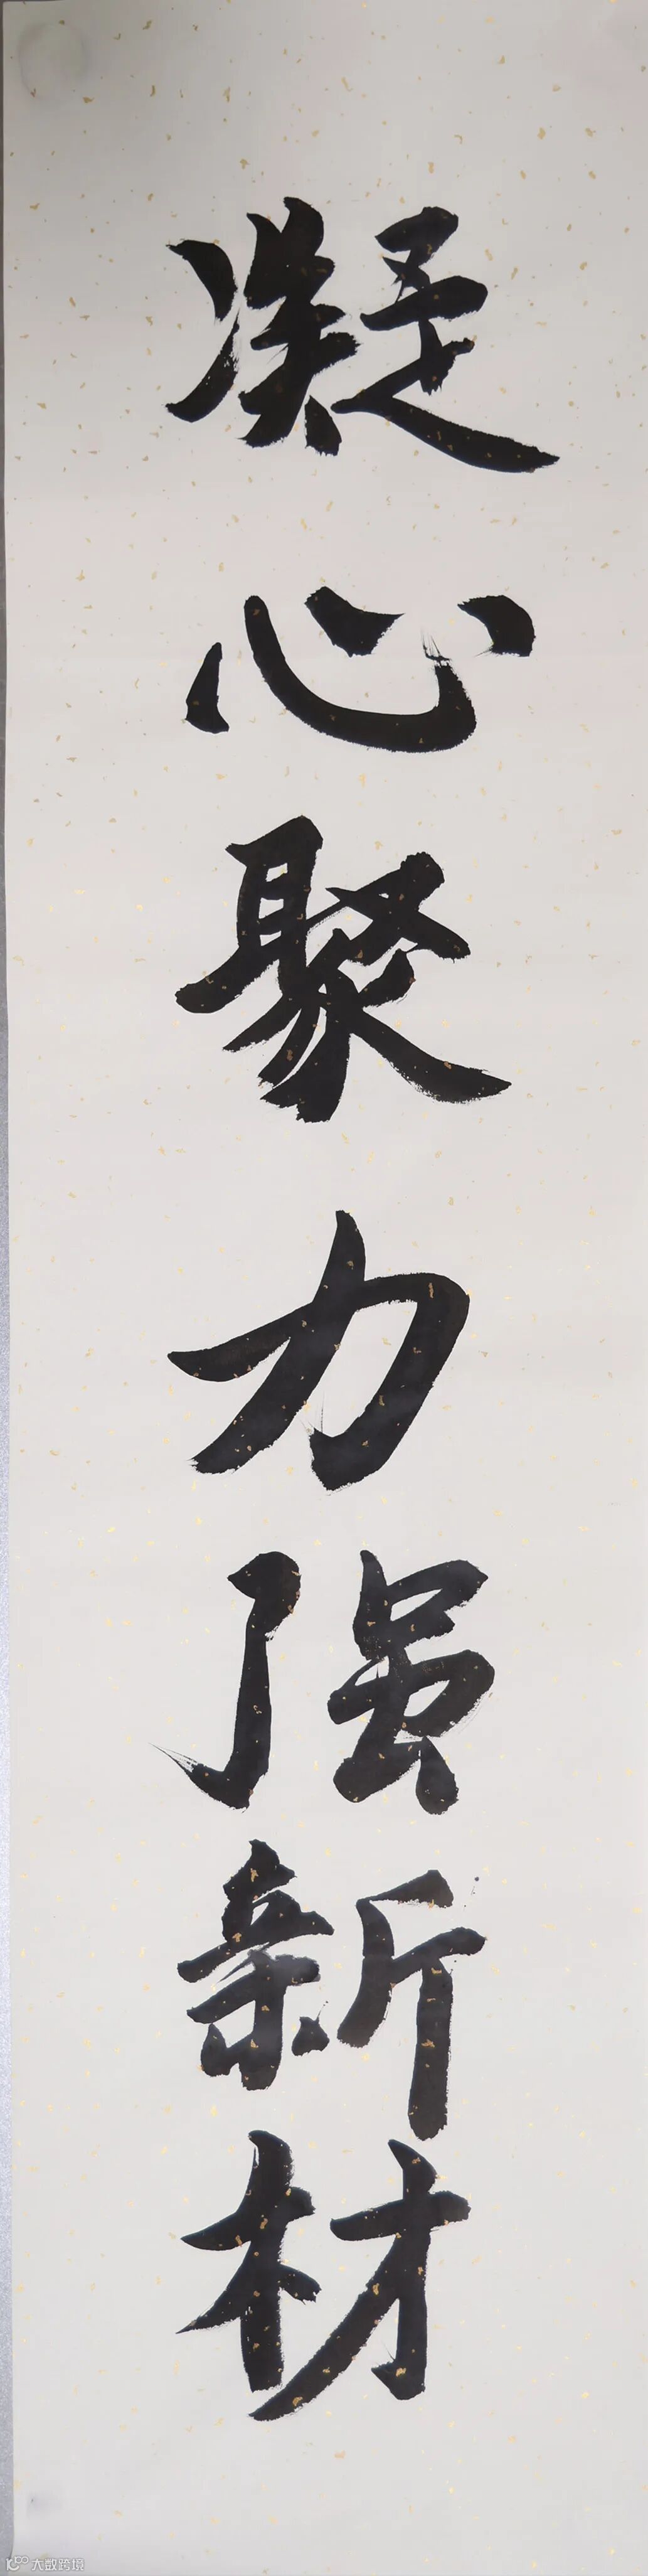 凝心聚力强新材
大数跨境